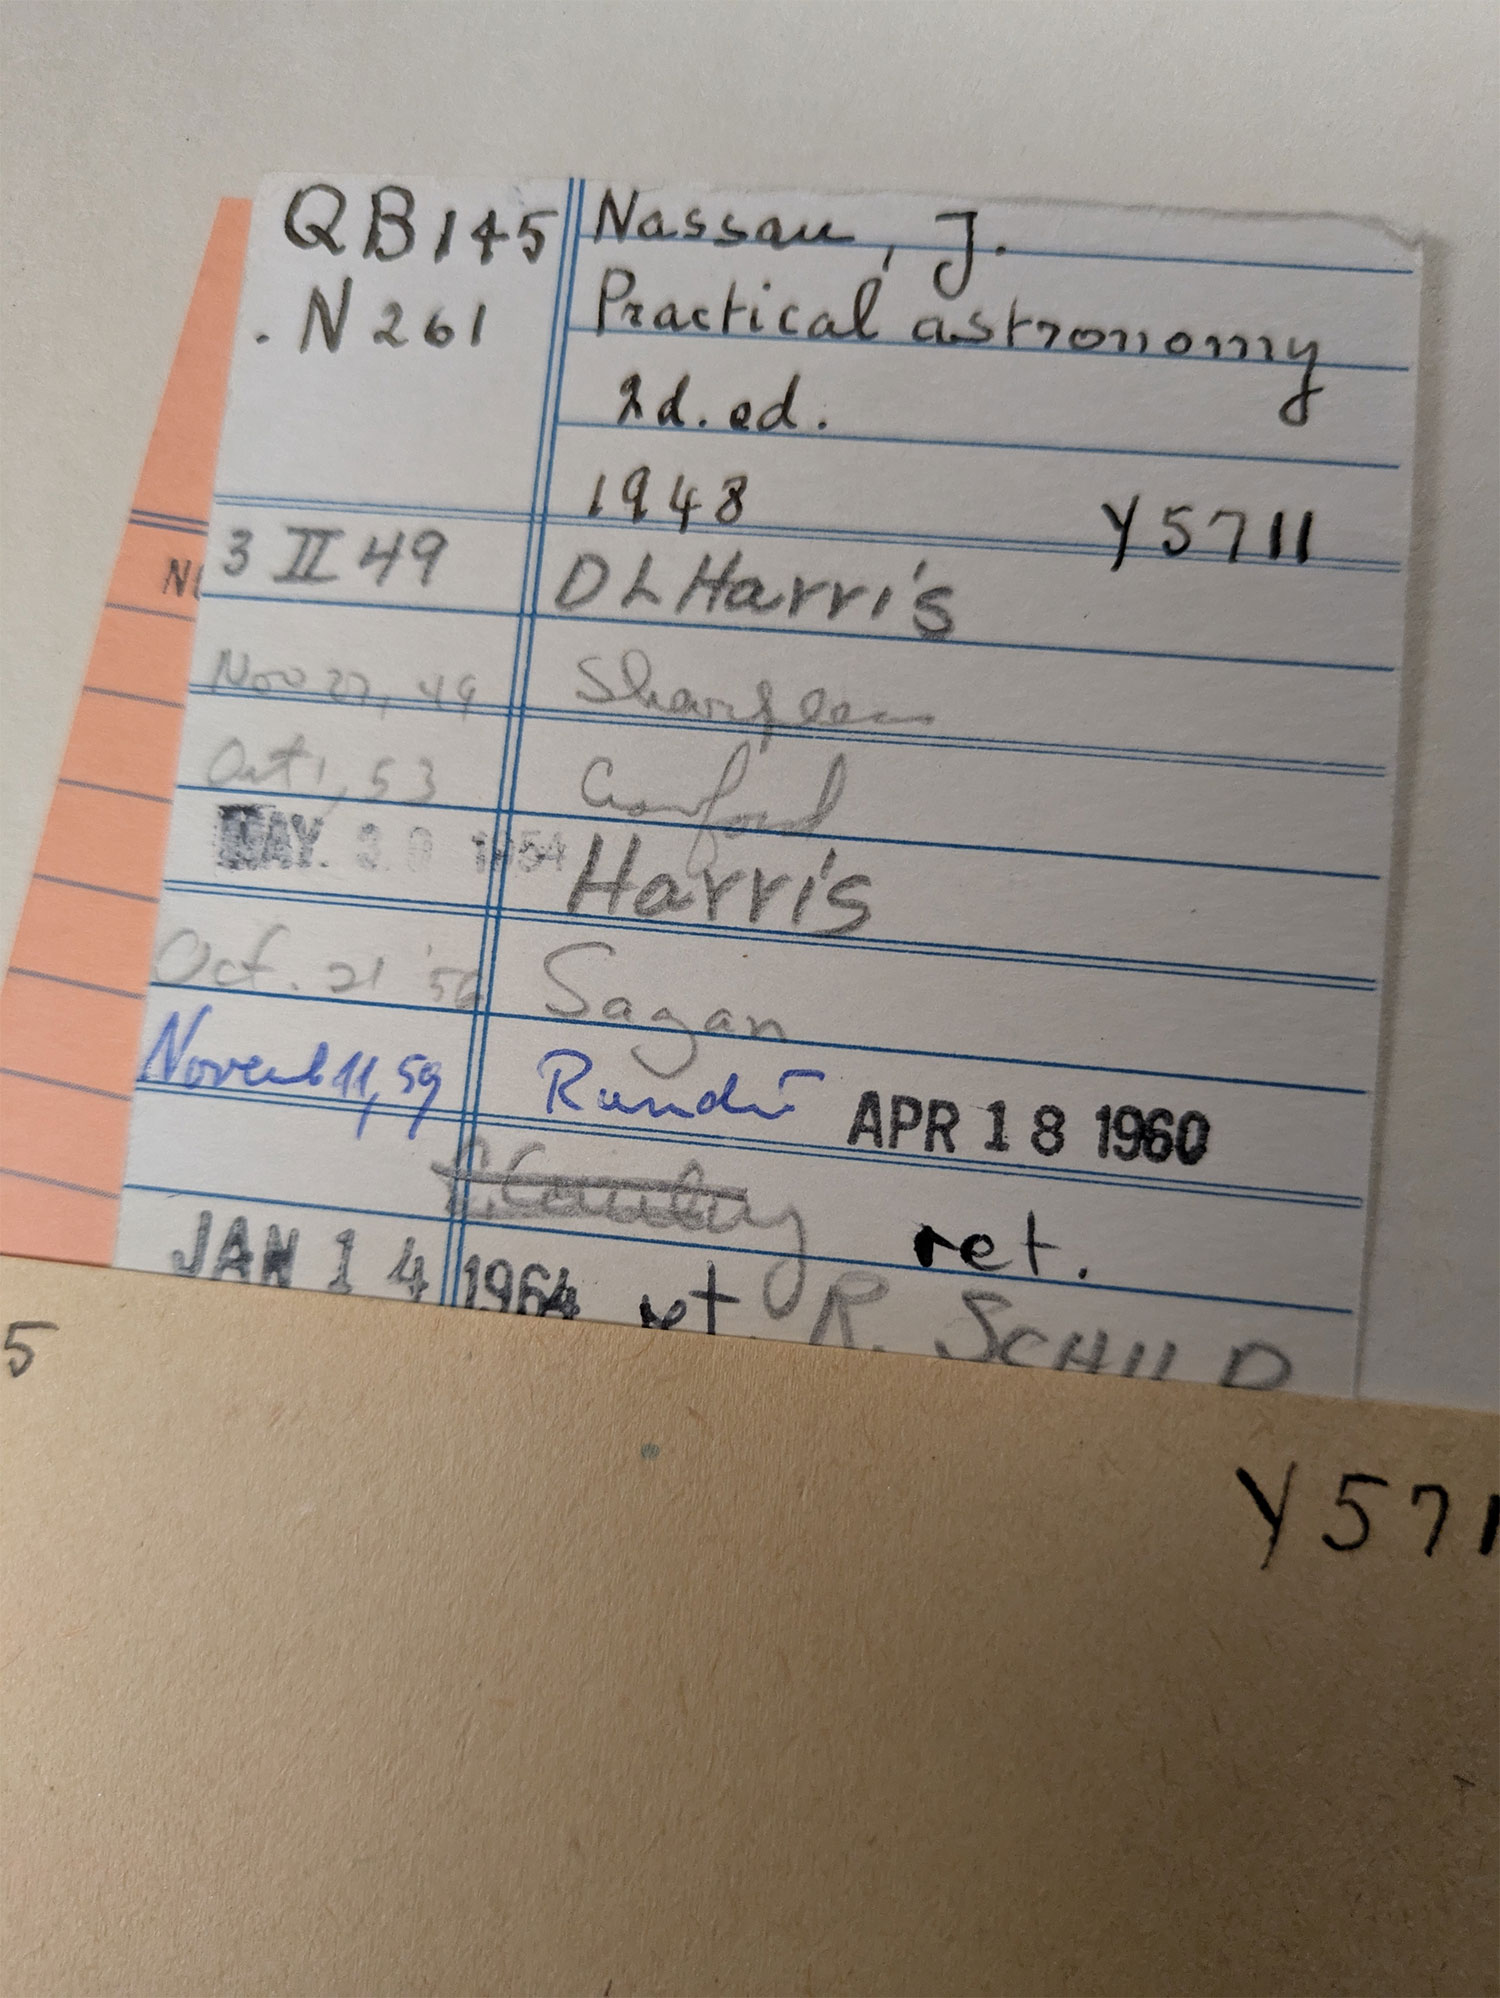 QB145 Nassau, J.
.N261 Practical astronomy
2d. ed.
1948 Y5711
3 II 49 DLHarris
Nov 27, 49
Oct 1, 53 Crawford
MAY. 1954 Harris
Oct. 21 '56 Sagan
11, 59 APR 18 1960
ret.
JAN 14 1964 ret R. SCHILD
5
Y571